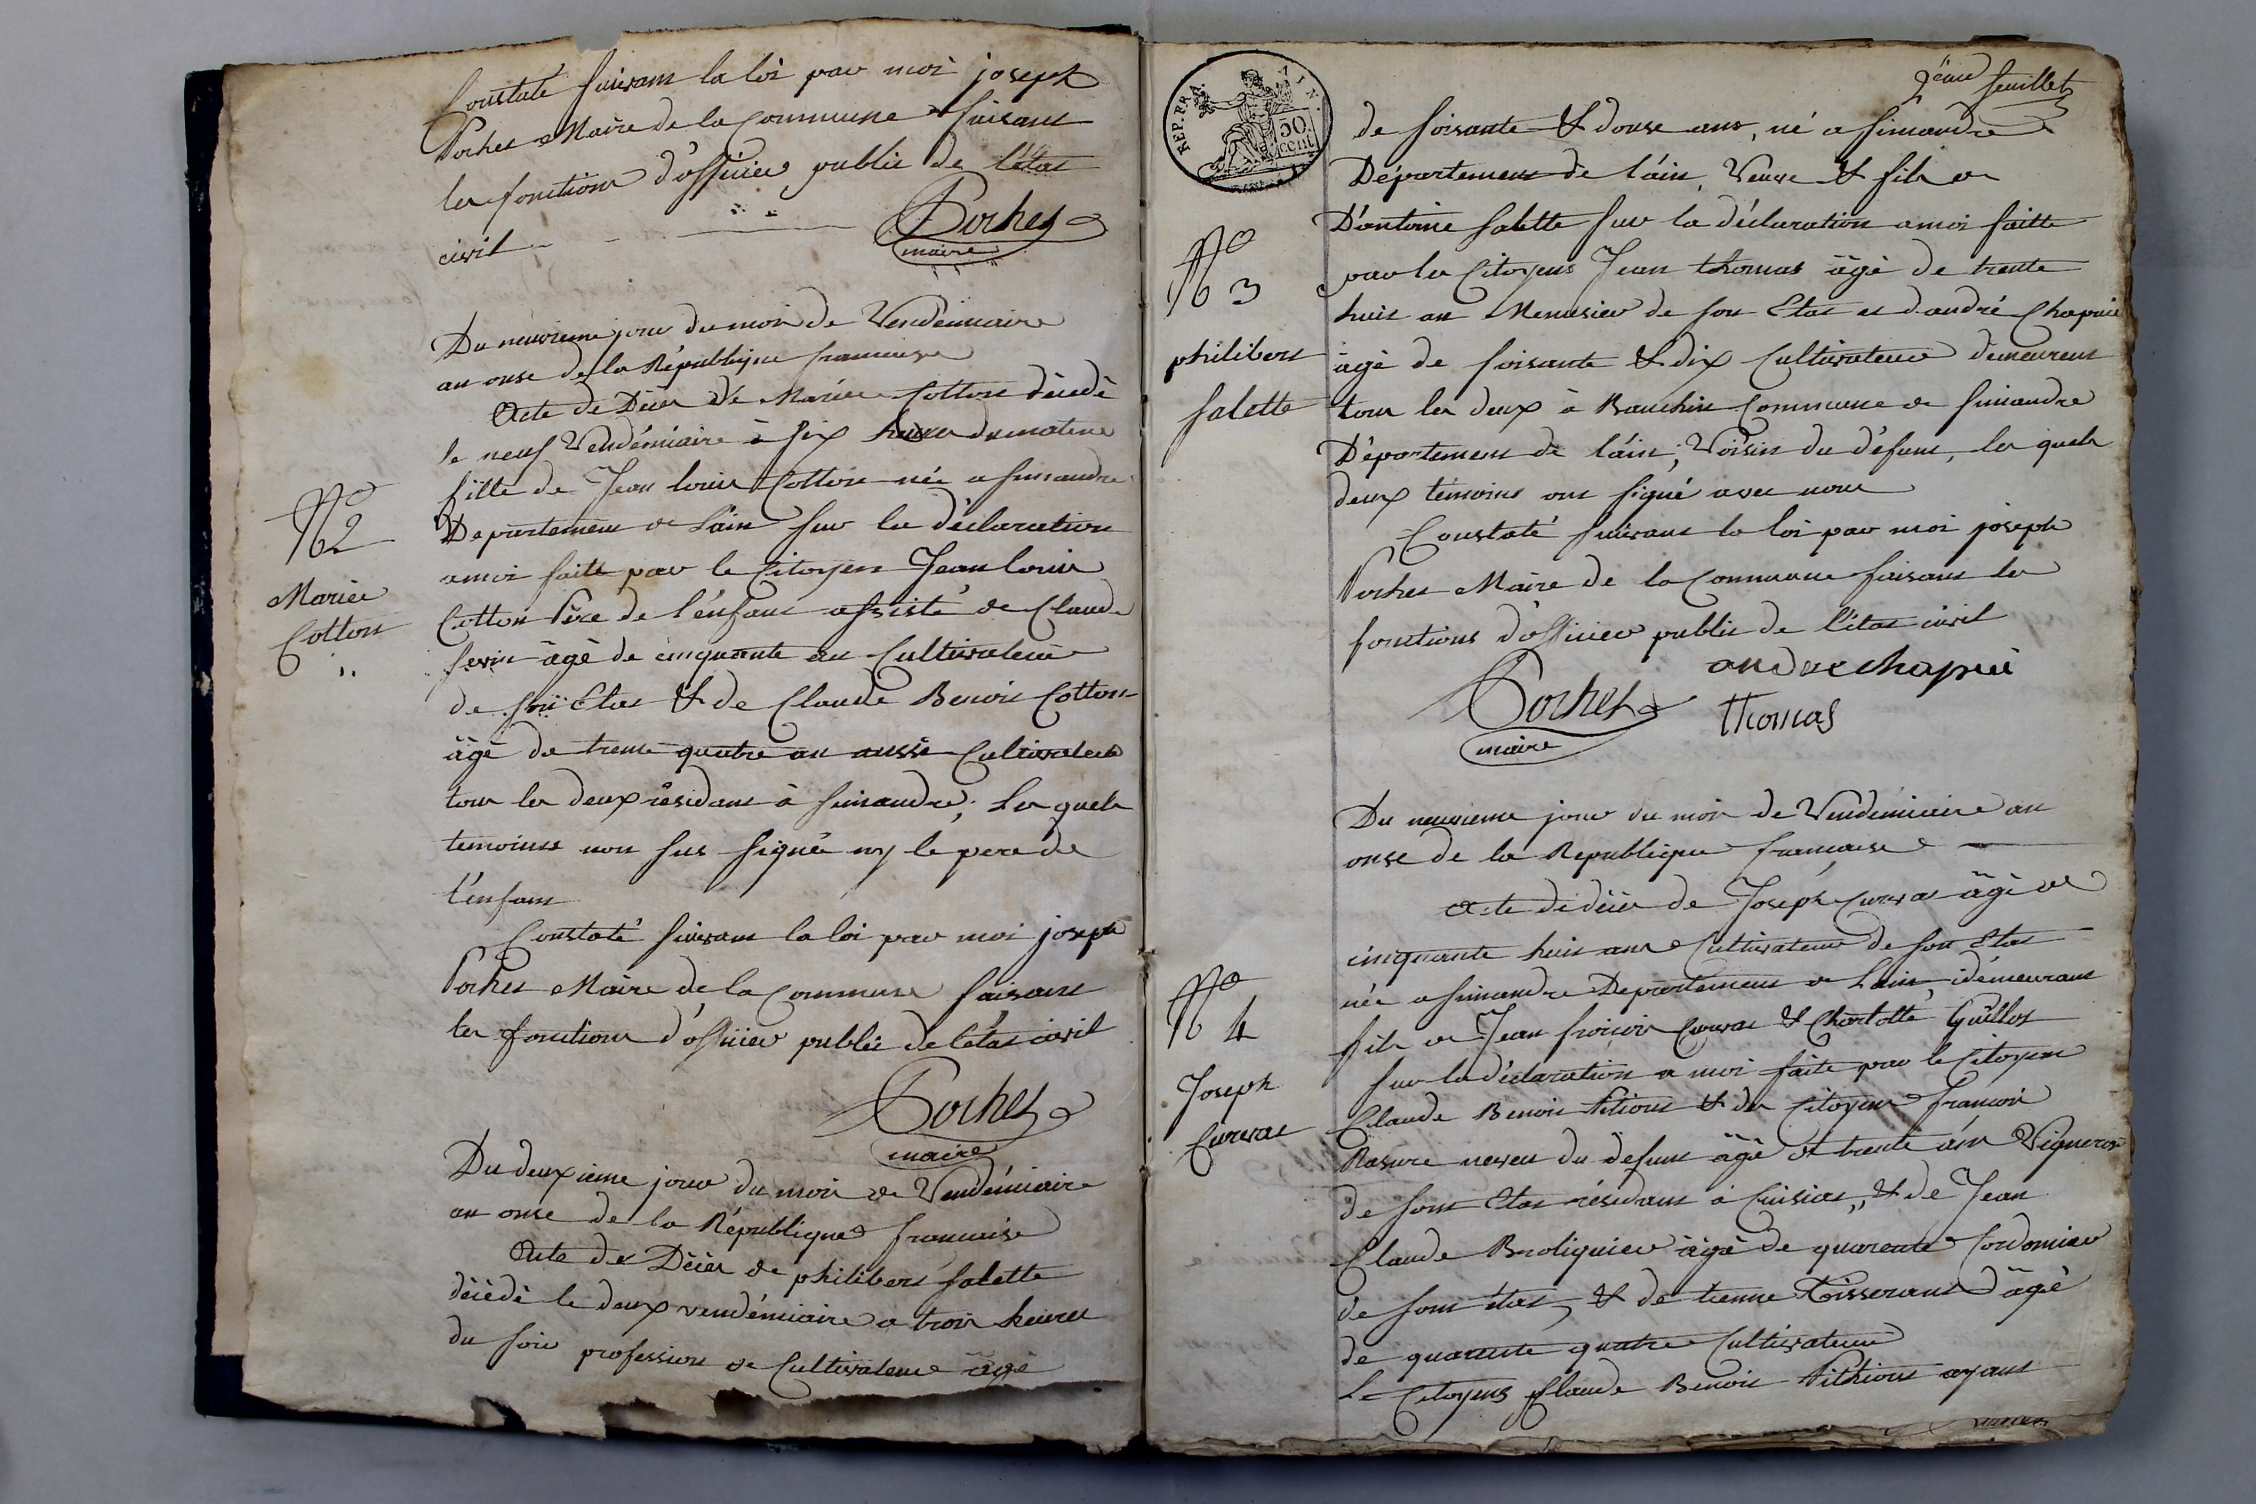 Constaté suivant la loi par moi joseph
Porhet Maire de la Commune faisant
les fonctions d'officier public de l'état
civil
Porhet
maire
Du neuvieme jour du mois de Vendémiaire
an onse de la République francaise
Acte de Décés de Mariée Cotton décédé
le neuf Vendémiaire à six heures du matin
fille de Jean louis Cotton née a simandre
Departement de Lain sur la déclaration
a moi faite par le Citoyen Jean louis
Cotton Père de l'énfant assisté de Claude
agé de cinquante an Cultivateur
de son Etat & de Claude Benoit Cotton
âgé de trente quatre an aussi Cultivateur
tous les deux résidant à simandre, Les quels
temoins non sus signé ny le pere de
l'enfant
Constaté suivant la loi par moi joseph
Porhet Maire de la Commune faisant
les fonctions d'officier public de l'état civil
Porhet
maire
No 2
Mariée
Cotton
Du deuxieme jour du mois de Vendémiaire
an onse de la République francaise
Acte de Décés de philibert salette
décédé le deux vendémiaire a trois heures
du soir profession de Cultivateur âgé
2ème feuillet
REP. FRA.
AIN.
50
cent
de soisante & douse ans, né a simandre
Département de l'áin, Veuve & fils de
D'antoine salette sur la déclaration a moi faitte
par les Citoyens Jean thomas âgé de trente
huit an Menusier de son Etat et d'andré Chapuis
âgé de soisante & dix Cultivateur demeurent
tous les deux à Bauchin Commune de simandre
Département de láin, Voisin du défunt, les quels
deux témoins ont signé avec nous
Constaté suivant la loi par moi joseph
Porhet Maire de la Commune faisant les
fonctions d'officier public de l'état civil
andre chapui
Porhet
thomas
maire
No 3
philibert
salette
Du neuvieme jour du mois de Vendémiaire an
onse de la Republique francaise
Acte de décés de Joseph Curvat âgé de
cinquante huit ans Cultivateur de son Etat
née a simandre Departement de Lain, i démeurant
fils de Jean froiçois Curvat & Charlotte Guillot
sur la déclaration a moi faite par le Citoyen
Claude Benoit Pitiout & des Citoyens francois
Rasure neveu du défunt âgé de trente ans Vigneron
de son Etat résidant à Cuisiat, & de Jean
Claude Broliquier âgé de quarente Cordonier
de son état, & de tienne Tisserant d'âgé
de quarente quatre Cultivateur
Le Citoyens Claude Benoit Pithiout ayant
No 4
Joseph
Curvat